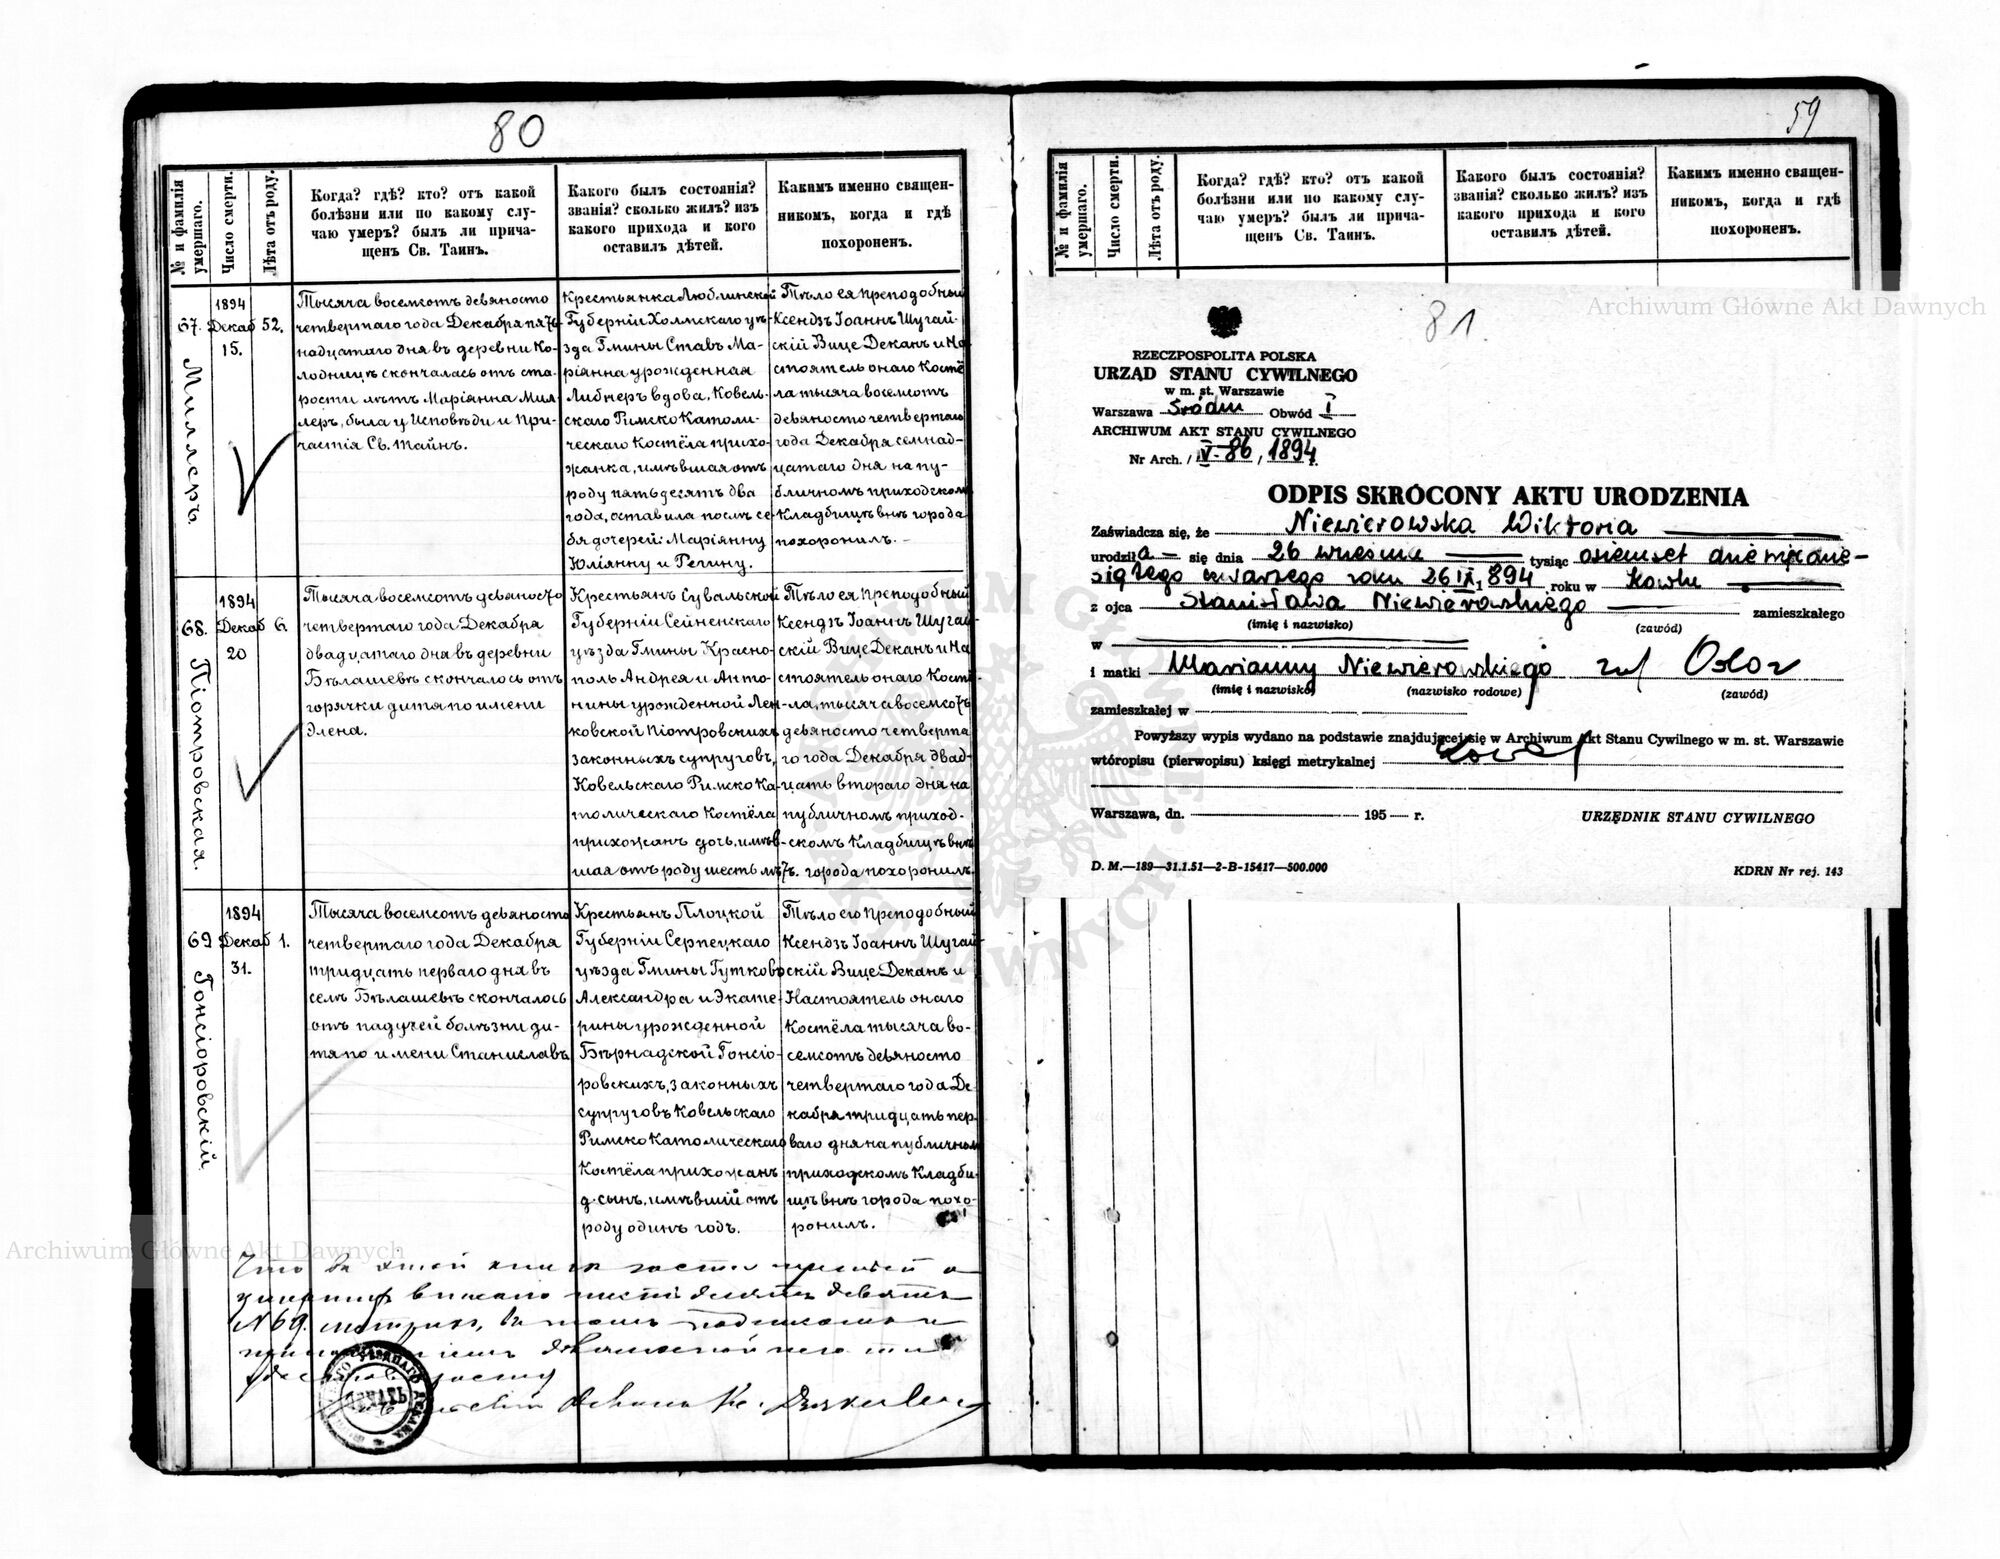 80
№ и фамилія умершаго.
Число смерти.
Лѣта отъ роду.
Когда? гдѣ? кто? отъ какой
болѣзни или по какому слу-
чаю умеръ? былъ ли прича-
щенъ Св. Таинъ.
Какого былъ состоянія?
званія? сколько жилъ? изъ
какого прихода и кого
оставилъ дѣтей.
Какимъ именно священ-
никомъ, когда и гдѣ
похороненъ.
67. Миллеръ
1894
Декаб
15.
52.
Тысяча восемсотъ девяносто
четвертаго года Декабря пят-
надцатаго дня въ деревни Ко-
лодницѣ скончалась отъ ста-
рости лѣтъ Маріянна Мил-
леръ, была у Исповѣди и При-
частія Св. Тайнъ.
Крестьянка Люблинской
Губерніи Холмскаго уѣ-
зда Гмины Ставъ Ма-
ріянна урожденная
Либнеръ вдова, Ковель-
скаго Римско Католи-
ческаго Костёла прихо-
жанка, имѣвшая отъ
роду пятьдесятъ два
года, оставила послѣ се-
бя дочерей: Маріянну
Юліянну и Регину.
Тѣло ея Преподобный
Ксендзъ Іоаннъ Шугай-
скій Вице Деканъ и На-
стоятель онаго Костё
ла тысяча восемсотъ
девяносто четвертаго
года Декабря семнад-
цатаго дня на пу-
бличномъ приходском
Кладбищѣ внѣ города
похоронилъ.-
68. Піотровская.
1894
Декаб
20
6.
Тысяча восемсотъ девяносто
четвертаго года Декабря
двадцатаго дня въ деревни
Бѣлашевѣ скончалось отъ
горячки дитя по имени
Элена.
Крестьянъ Сувальской
Губерніи Сейненскаго
уѣзда Гмины Красно-
поль Андрея и Анто-
нины урожденной Лен-
ковской Піотровскихъ
законныхъ супруговъ,
Ковельскаго Римско Ка-
толическаго Костёла
прихожанъ дочь, имѣв-
шая отъ роду шесть лѣтъ.
Тѣло ея Преподобный
Ксендзъ Іоаннъ Шугай-
скій Вице Деканъ и На
стоятель онаго Костё
ла тысяча восемсотъ
девяносто четверта
го года Декабря двад-
цать втораго дня на
публичномъ приход-
скомъ Кладбищѣ внѣ
города похоронилъ.
69 Гонсіоровскій
1894
Декаб
31.
1.
Тысяча восемсотъ девяносто
четвертаго года Декабря
тридцать перваго дня въ
селѣ Бѣлашевѣ скончалось
отъ падучей болѣзни ди-
тя по имени Станиславъ
Крестьянъ Плоцкой
Губерніи Серпецкаго
уѣзда Гмины Гутково
Александра и Экате-
рины урожденной
Бѣрнадской Гонсіо-
ровскихъ, законныхъ
супруговъ Ковельскаго
Римско Католическаго
Костёла прихожанъ
сынъ, имѣвшій отъ
роду одинъ годъ.
Тѣло его Преподобный
Ксендзъ Іоаннъ Шугай-
скій Вице Деканъ и
Настоятель онаго
Костёла тысяча во-
семсотъ девяносто
четвертаго года Де-
кабря тридцать пер
ваго дня на публичном
приходскомъ Кладби-
щѣ внѣ города похо-
ронилъ.
Что въ этой книгѣ
№ 69.
ПЕЧАТЬ
59
№ и фамилія умершаго.
Число смерти.
Лѣта отъ роду.
Когда? гдѣ? кто? отъ какой
болѣзни или по какому слу-
чаю умеръ? былъ ли прича-
щенъ Св. Таинъ.
Какого былъ состоянія?
званія? сколько жилъ? изъ
какого прихода и кого
оставилъ дѣтей.
Какимъ именно священ-
никомъ, когда и гдѣ
похороненъ.
81.
RZECZPOSPOLITA POLSKA
URZĄD STANU CYWILNEGO
w m. st. Warszawie
Warszawa Śródm Obwód I
ARCHIWUM AKT STANU CYWILNEGO
Nr Arch. / IV-86, 1894 r.
ODPIS SKRÓCONY AKTU URODZENIA
Zaświadcza się, że Niewierowska Wiktoria
urodziła się dnia 26 września tysiąc osiemset dziewięćdzie-
siątego czwartego roku 26 IX 1894 roku w Kowlu
z ojca Stanisława Niewierowskiego zamieszkałego
(imię i nazwisko) (zawód)
w
i matki Marianny Niewierowskiego z d. Osloz
(imię i nazwisko) (nazwisko rodowe) (zawód)
zamieszkałej w
Powyższy wypis wydano na podstawie znajdującej się w Archiwum Akt Stanu Cywilnego w m. st. Warszawie
wtóropisu (pierwopisu) księgi metrykalnej Kowel
Warszawa, dn. 195 r.
URZĘDNIK STANU CYWILNEGO
D. M.—189—31.1.51—2-B-15417—500.000
KDRN Nr rej. 143
Archiwum Główne Akt Dawnych
Archiwum Główne Akt Dawnych
ARCHIWUM GŁÓWNE AKT DAWNYCH